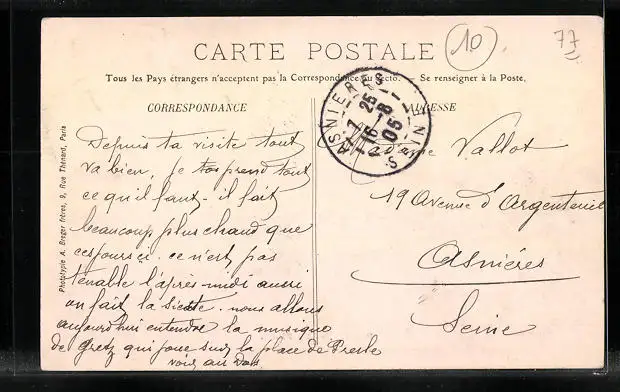 10
77
CARTE POSTALE
Tous les Pays étrangers n'acceptent pas la Correspondance au recto. — Se renseigner à la Poste.
CORRESPONDANCE
ADRESSE
ASNIERES
7 25
16 - 8
05
Depuis ta visite tout
va bien, je tout
ce qu'il faut - il fait
beaucoup plus chaud que
ces jours ci. ce n'est pas
tenable l'après-midi aussi
on fait la sieste. nous allons
aujourd'hui entendre la musique
de Gretz qui joue sur la place de Presle
voir au dos
Madame Vallot
19 Avenue d'Argenteuil
Asnières
Seine
Phototypie A. Breger frères, 9, Rue Thénard, Paris